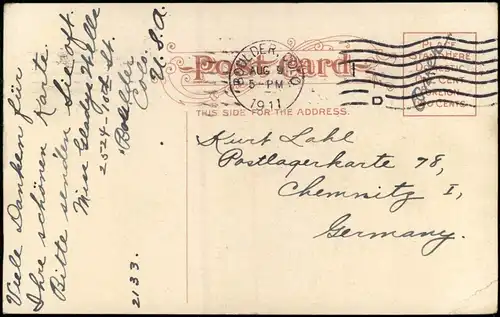 Viele Danken für
Ihre schönen Karte.
Bitte senden Sie oft.
Miss Gladys Wells
2524-10th St.
Boulder
Colo.
U.S.A.
2133.
Post Card
THIS SIDE FOR THE ADDRESS.
BOULDER, COLO.
AUG 9
5-PM
1911
D
PLACE
STAMP HERE
CENTS
Kurt Lahl
Postlagerkarte 78,
Chemnitz I,
Germany.